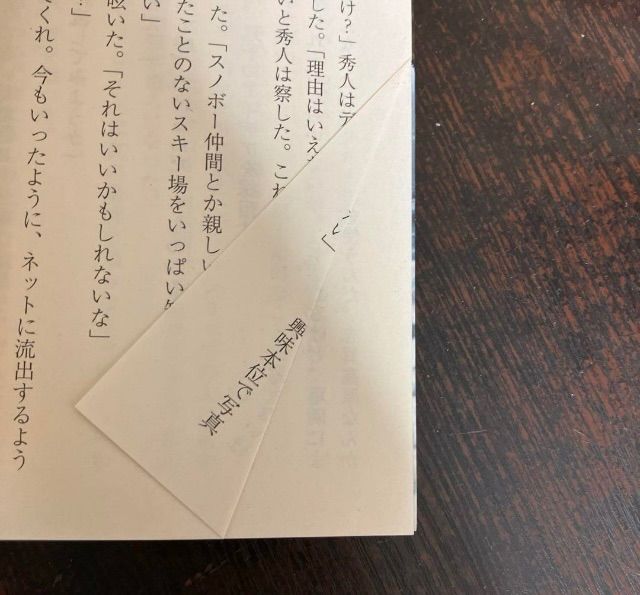 け?」秀人は
した。「理由はいえ
いと秀人は察した。これ
た。「スノボー仲間とか親しい
たことのないスキー場をいっぱい
い」
呟いた。「それはいいかもしれないな」
?」
くれ。今もいったように、ネットに流出するよう
興味本位で写真